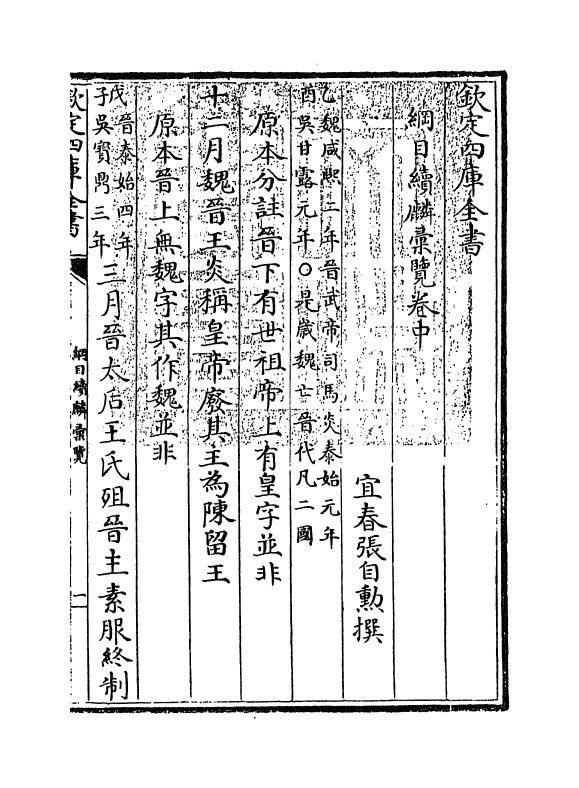 欽定四庫全書
綱目續麟彙覽卷中
宜春張自勲撰
乙魏咸熙二年晉武帝司馬炎泰始元年
酉吳甘露元年○是歳魏亡晉代凡二國
原本分註晉下有世祖帝上有皇字並非
十二月魏晉王炎稱皇帝廢其主為陳留王
原本晉上無魏字其作魏並非
戊晉泰始四年
子吳寳鼎三年
三月晉太后王氏殂晉主素服終制
欽定四庫全書
綱目續麟彙覽
一